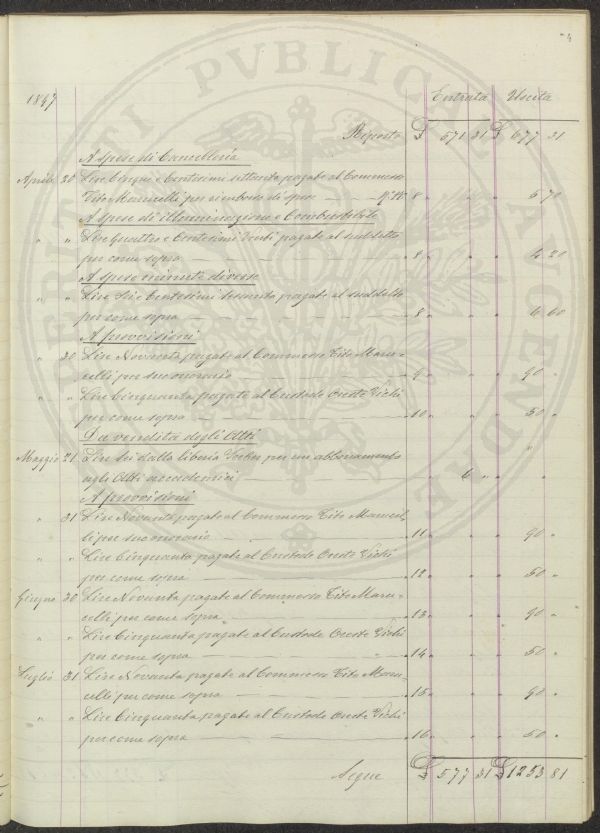 PVBLICAE
AVGENDAE
1847
Entrata Uscita
Riporto £ 571 31 £ 677 31
A spese di Cancelleria
Aprile 30 Lire Cinque e Centesimi settanta pagate al Commesso
Tito Marucelli per rimborso di spese 8 „ 5 70
A spese di illuminazione e Combustibile
„ „ Lire Quattro e Centesimi Venti pagate al suddetto
per come sopra 8 „ 4 20
A spese minute diverse
„ „ Lire Sei e Centesimi Sessanta pagate al suddetto
per come sopra 8 „ 6 60
A provvisioni
„ 30 Lire Novanta pagate al Commesso Tito Maru-
celli per suo onorario 9 „ 90 „
„ „ Lire Cinquanta pagate al Custode Oreste Vichi
per come sopra 10 „ 50 „
Da vendita degli Atti
Maggio 21 Lire Sei dalla libreria per un abbonamento
agli Atti accademici „ 6 „
A provvisioni
„ 31 Lire Novanta pagate al Commesso Tito Marucel-
li per suo onorario 11 „ 90 „
„ „ Lire Cinquanta pagate al Custode Oreste Vichi
per come sopra 12 „ 50 „
Giugno 30 Lire Novanta pagate al Commesso Tito Maru-
celli per come sopra 13 „ 90 „
„ „ Lire Cinquanta pagate al Custode Oreste Vichi
per come sopra 14 „ 50 „
Luglio 31 Lire Novanta pagate al Commesso Tito Maru-
celli per come sopra 15 „ 90 „
„ „ Lire Cinquanta pagate al Custode Oreste Vichi
per come sopra 16 „ 50 „
Segue £ 577 31 £ 1253 81